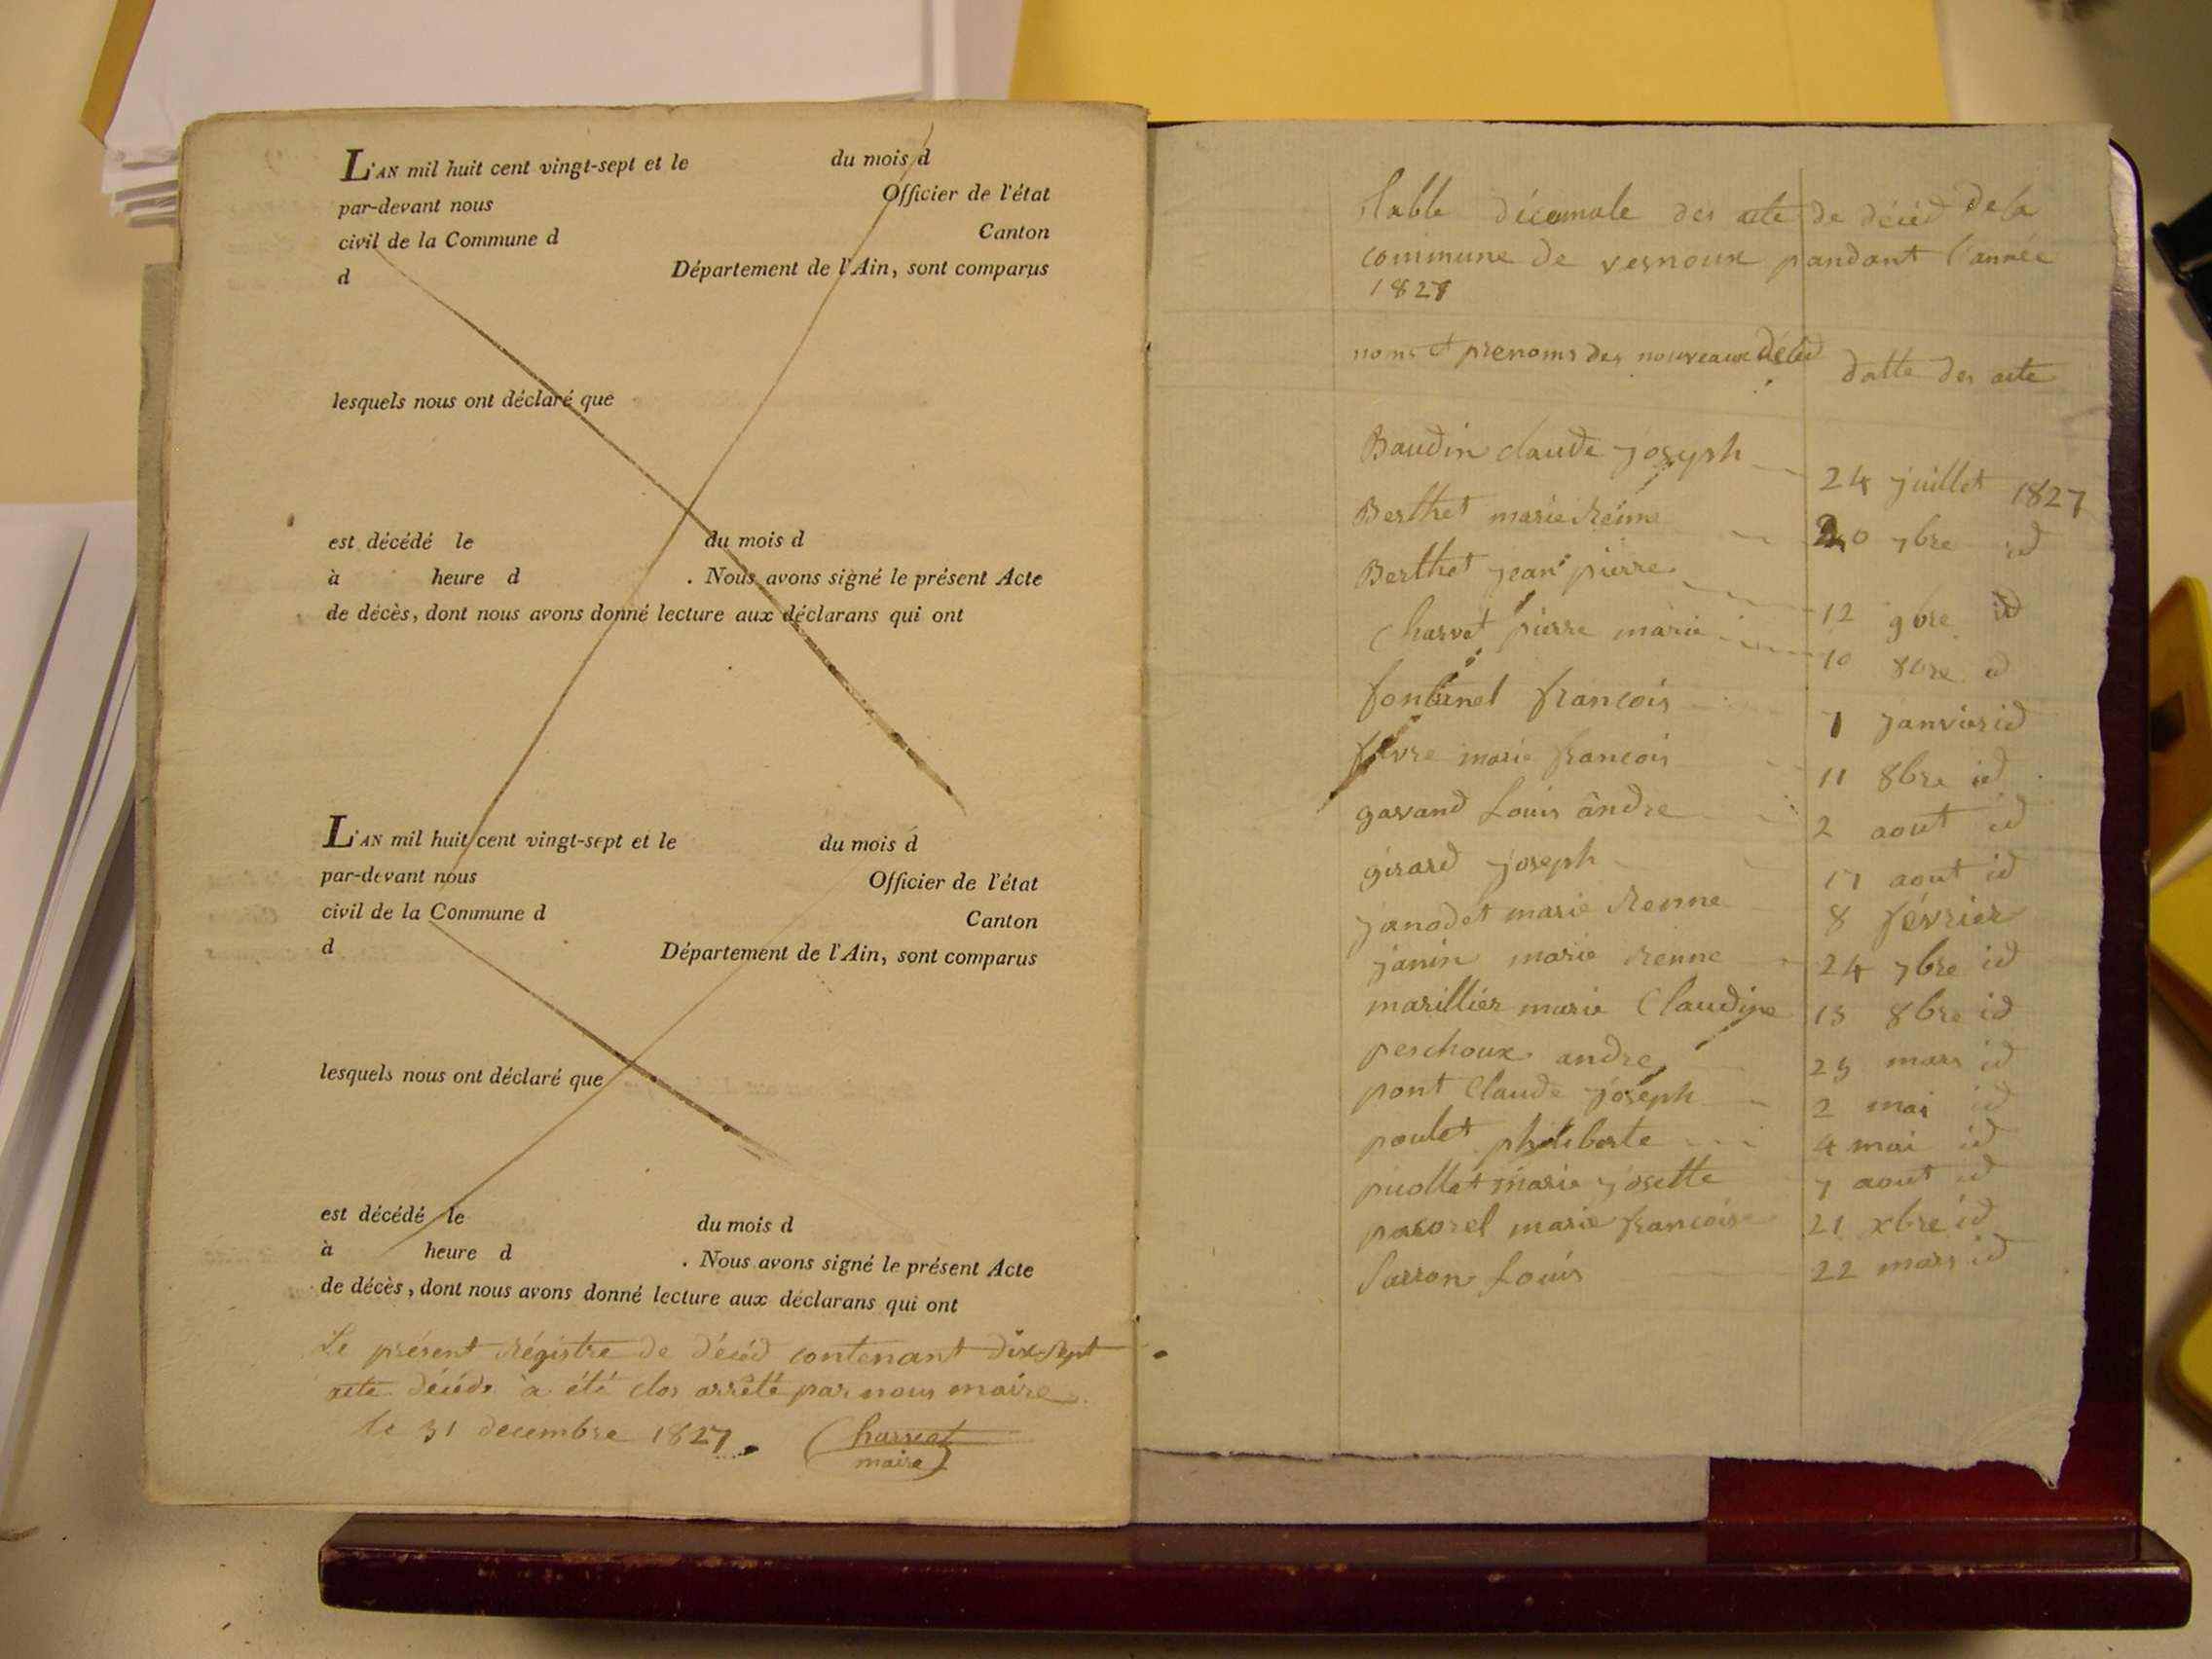 L'AN mil huit cent vingt-sept et le du mois d
par-devant nous Officier de l'état
civil de la Commune d Canton
d Département de l'Ain, sont comparus
lesquels nous ont déclaré que
est décédé le du mois d
à heure d . Nous avons signé le présent Acte
de décès, dont nous avons donné lecture aux déclarans qui ont
L'AN mil huit cent vingt-sept et le du mois d
par-devant nous Officier de l'état
civil de la Commune d Canton
d Département de l'Ain, sont comparus
lesquels nous ont déclaré que
est décédé le du mois d
à heure d . Nous avons signé le présent Acte
de décès, dont nous avons donné lecture aux déclarans qui ont
Le présent Régistre de décéd contenant dix sept
acte décéds a été clos arrêté par nous maire
le 31 decembre 1827.
maire
Table des acte de décéd de la
commune de vernoux pandant l'année
1827
noms et prenoms des nouveaux décéd datte des acte
Baudin claude joseph 24 juillet 1827
Berthet marie Reine 7bre id
Berthet jean pierre 12 9bre id
Charvet pierre marie 10 8bre id
françois janvier id
fevre marie françois 11 8bre id
gavand Louis andre 2 aout id
girard joseph 17 aout id
janodet marie Renne 8 février
janin marie renne 24 7bre id
marillier marie Claudine 13 8bre id
perchoux andre mars id
pont Claude joseph 2 mai id
poulet philiberte 4 mai id
puollet marie josette 7 aout id
pacorel marie françoise 21 xbre id
Sarron Louis 22 mars id